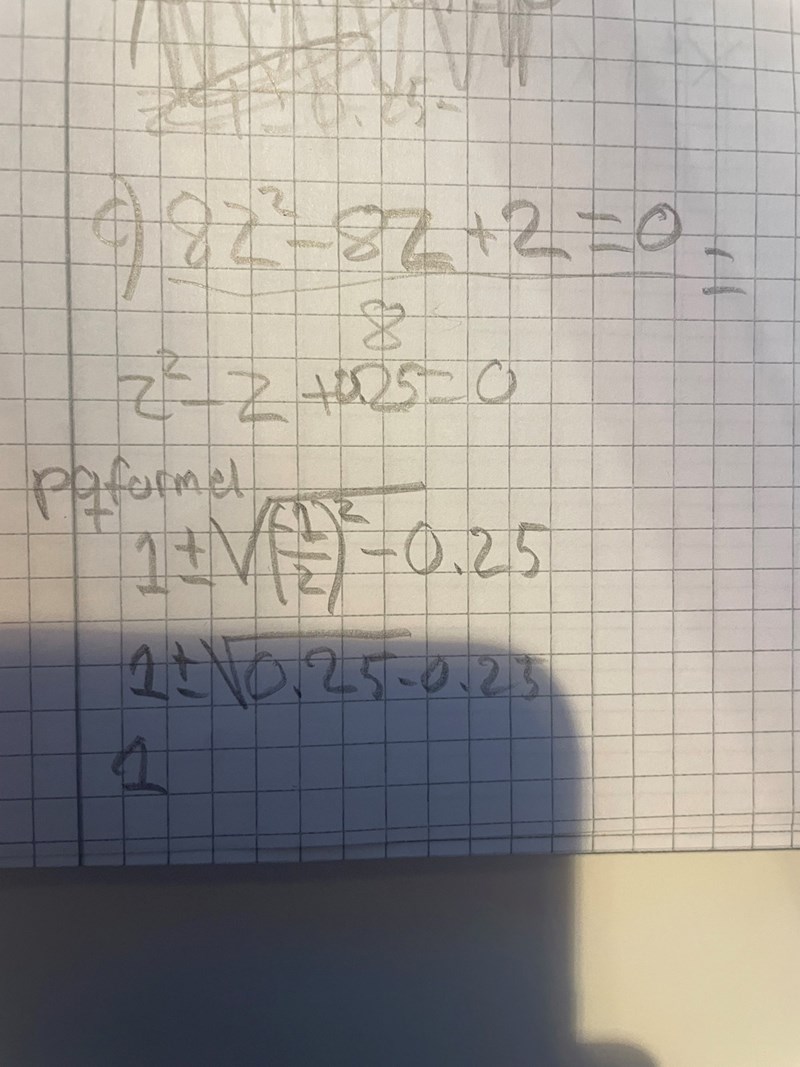 c) 8z² - 8z + 2 = 0 =
8
z² - z + 0.25 = 0
pqformel
1 ± √(-1/2)² - 0.25
1 ± √0.25 - 0.25
1